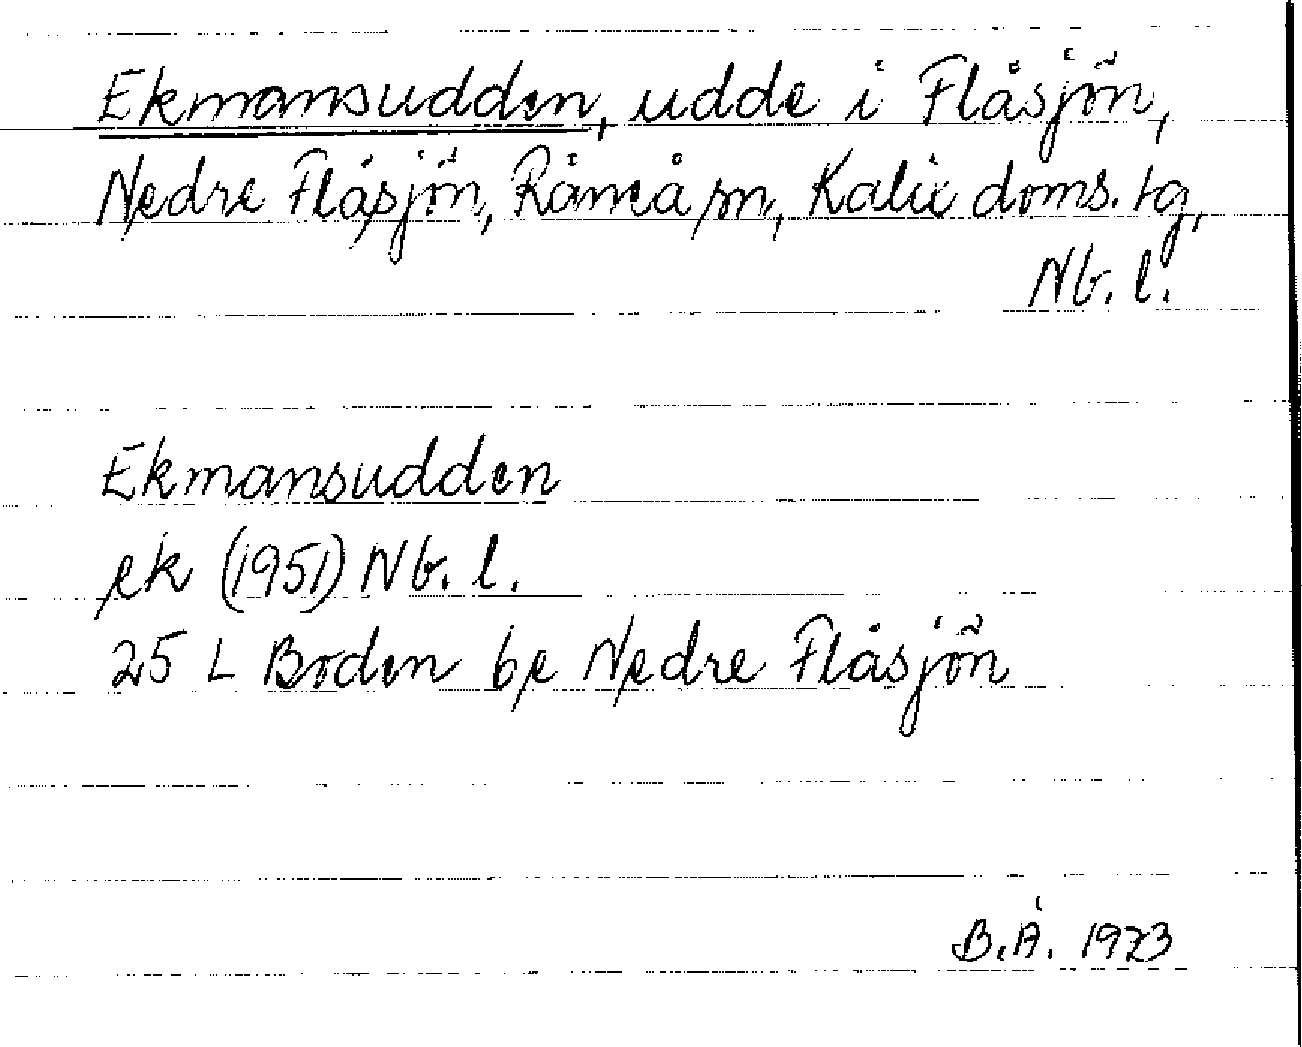 Ekmansudden, udde i Flåsjön,
Nedre Flåsjön, Råneå sn, Kalix doms. tg,
Nb. l.
Ekmansudden
ek (1951) Nb. l.
25 L Boden be Nedre Flåsjön
B.Å. 1973